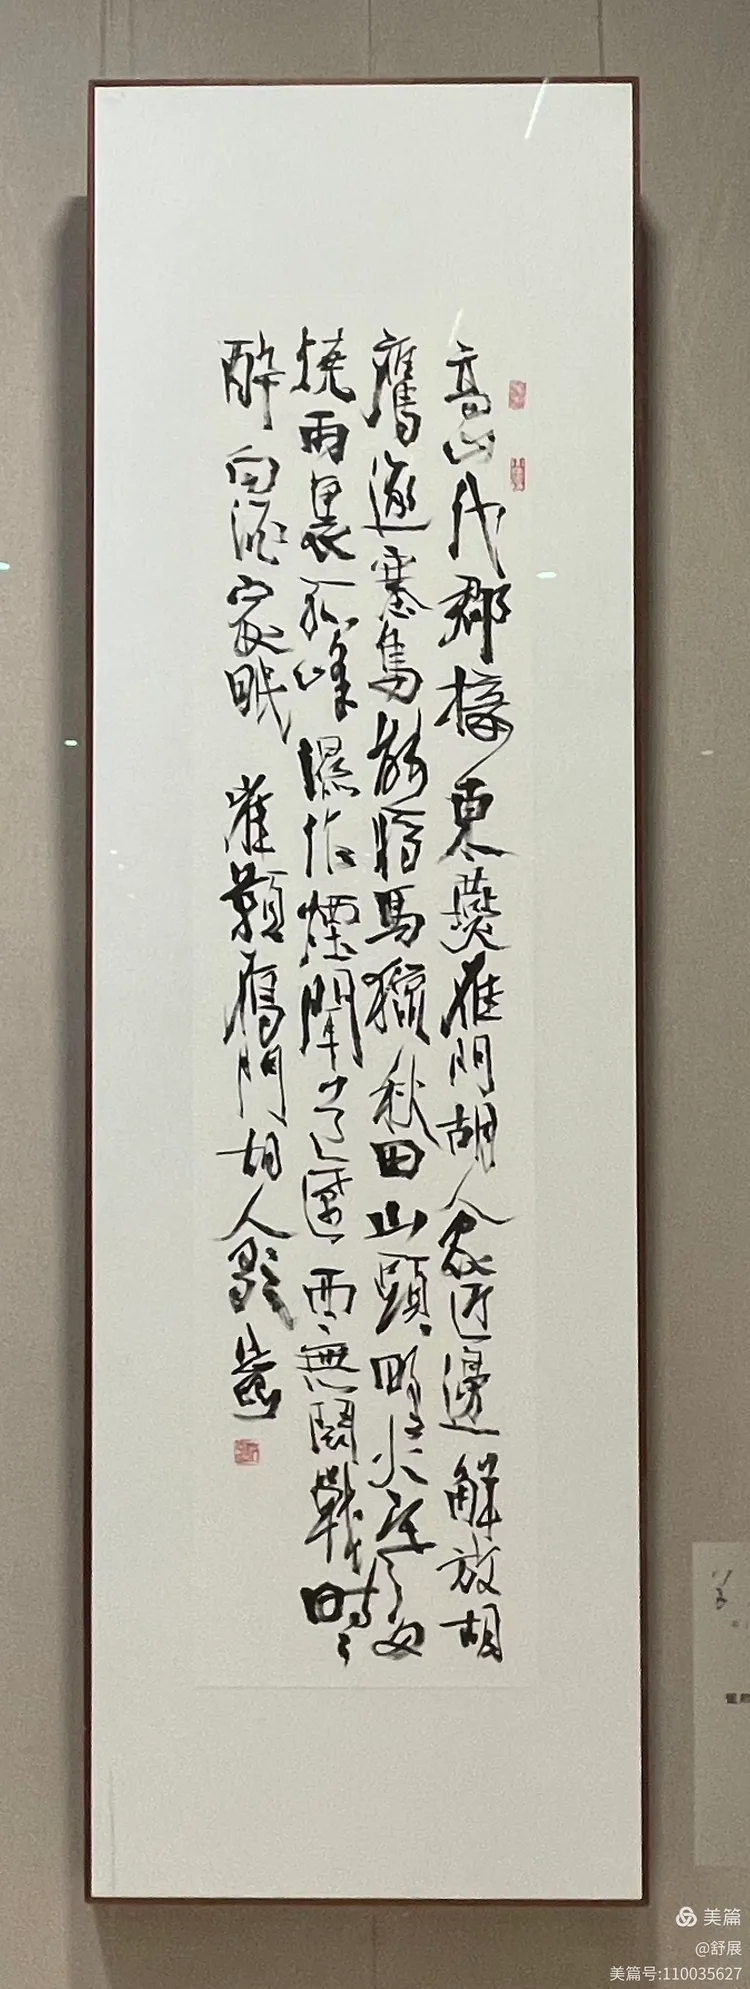 高山代郡接東燕雁門胡人家近邊解放胡
鷹逐塞鳥能將馬獵秋田山頭野火寒多
燒雨裏孤峰濕作煙聞道遼西無鬪戰時々
醉向酒家眠 崔顥鴈門胡人歌
美篇
@舒展
美篇号:110035627